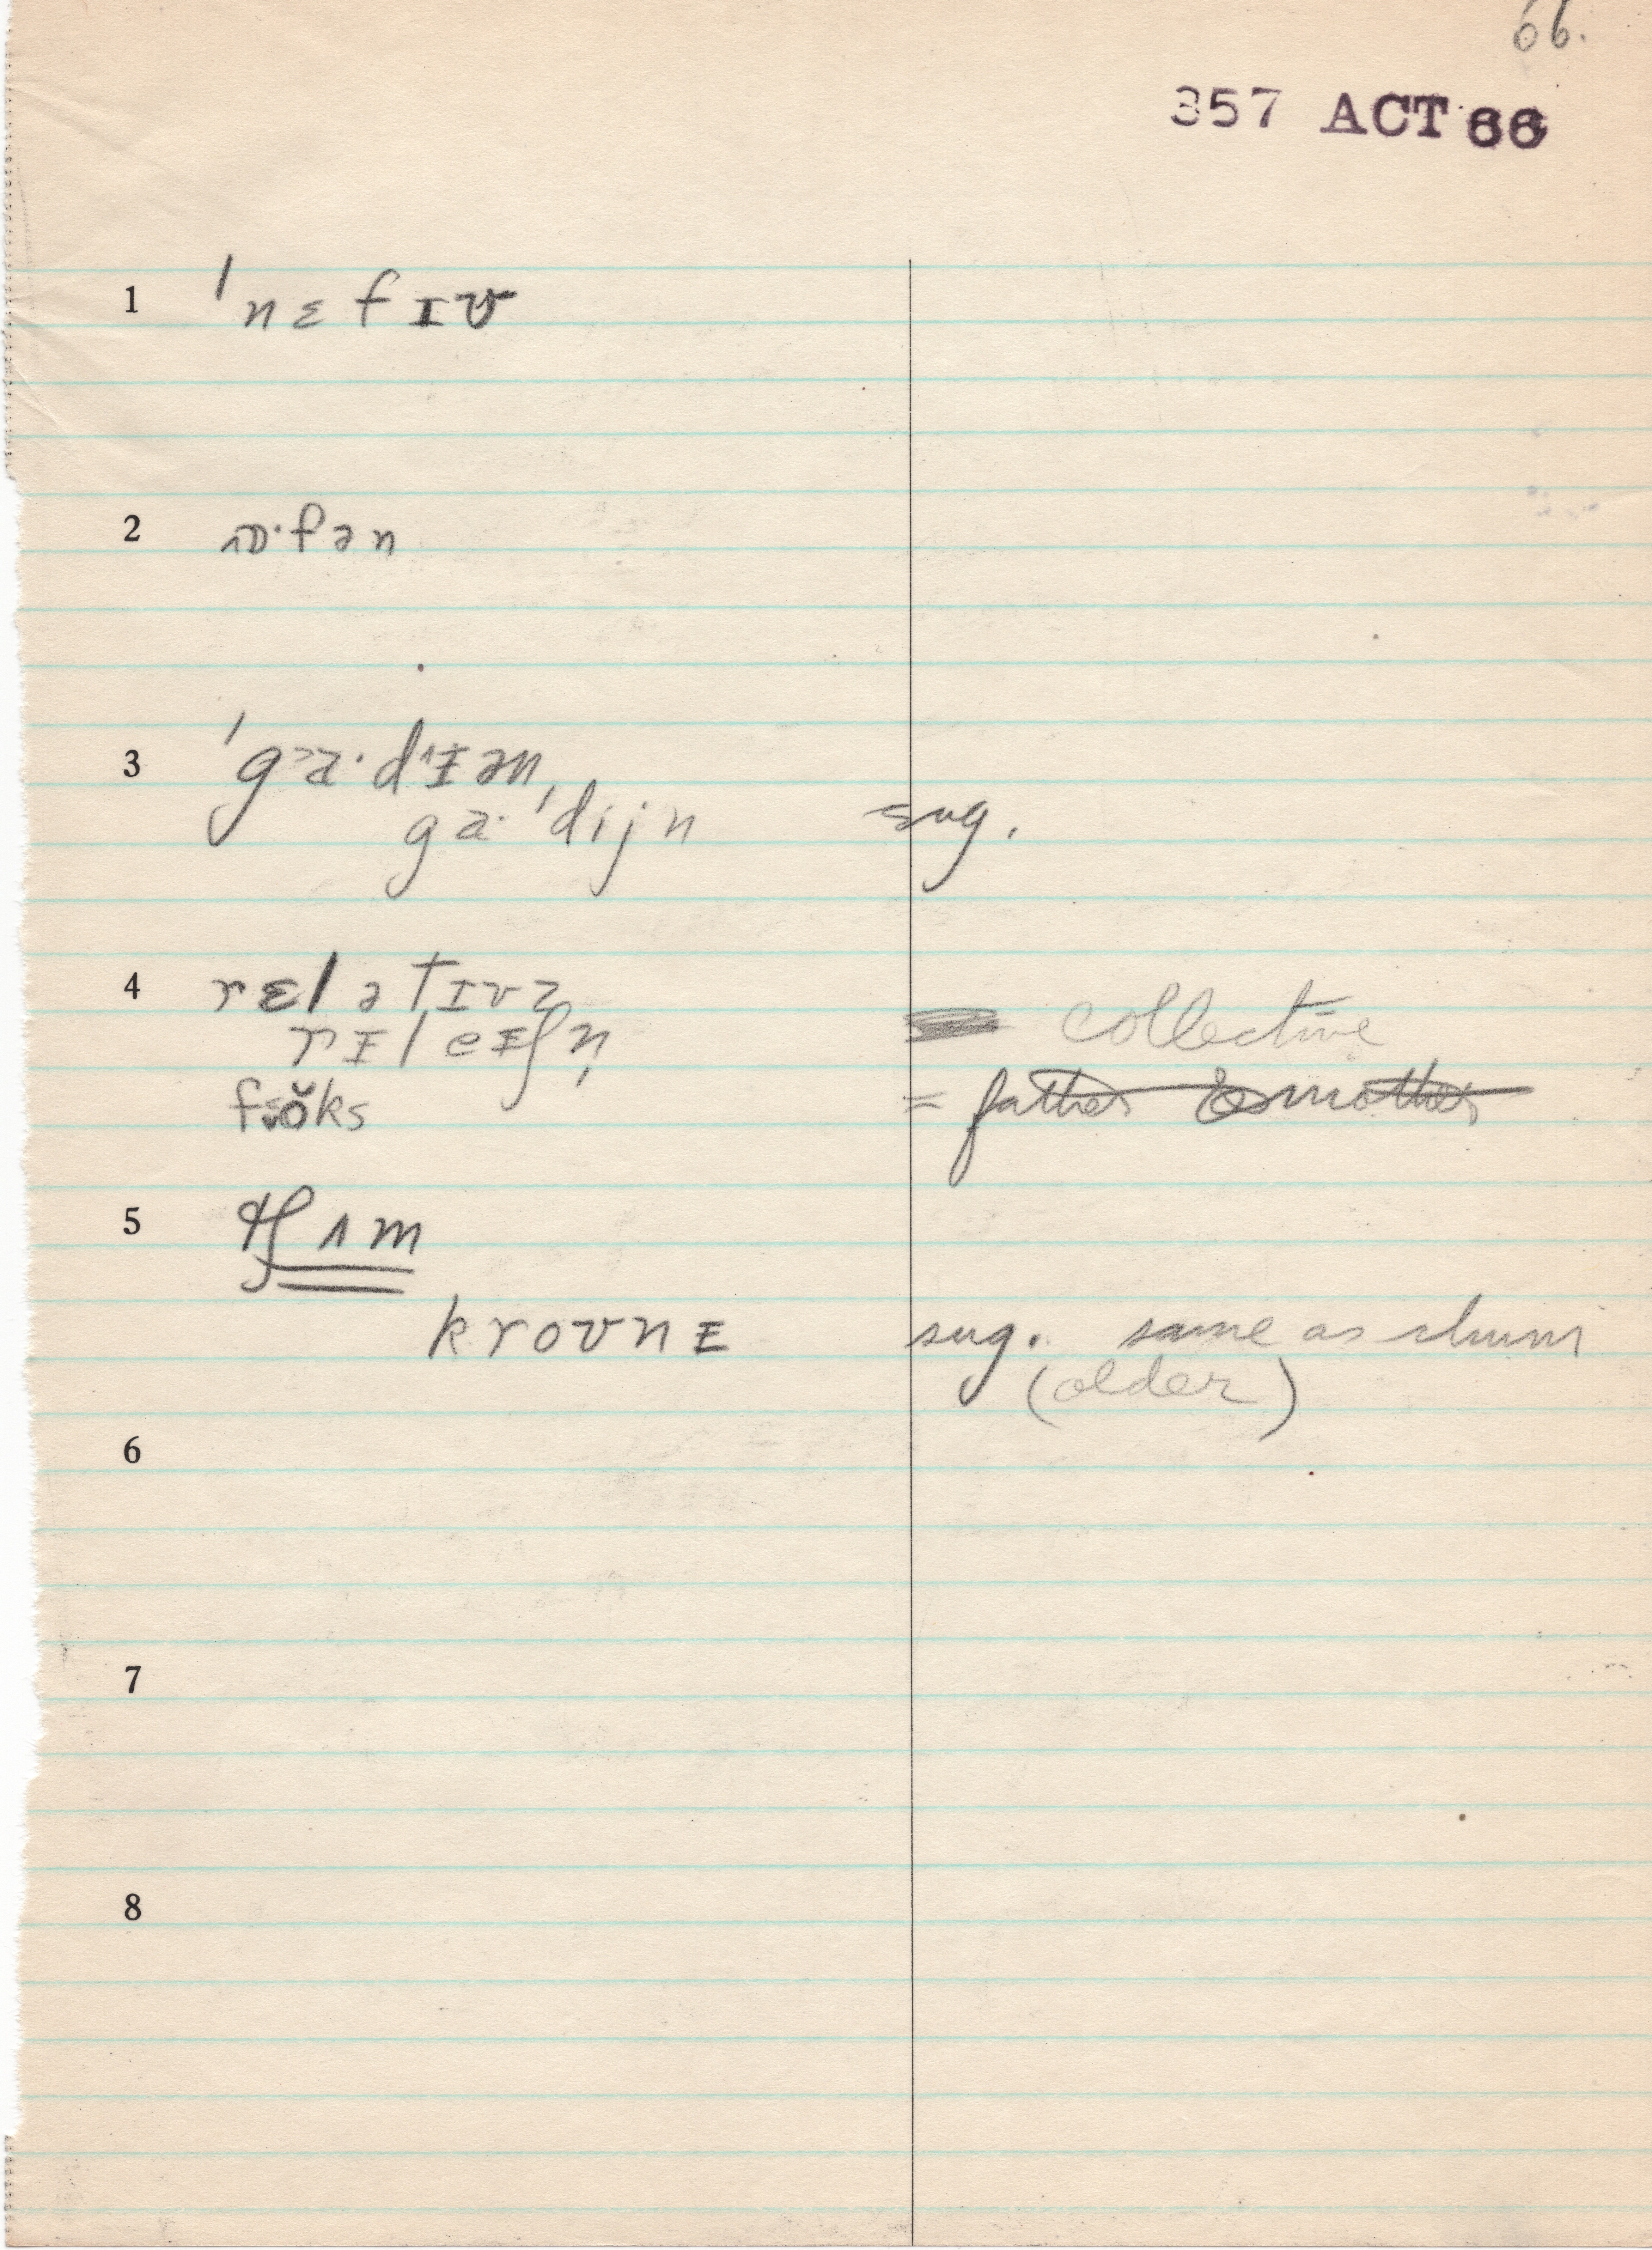 66.
357 ACT 66
1 ˈnɛfɪʊ
2 ɔɒ·fən
3 ˈgɑ·dɪən,
ga·ˈdijn sug.
4 rɛlətɪvz
rɪleɪʃn̩ collective
fŏks = father & mother
5 tʃʌm
kroʊnɪ sug. same as chum
(older)
6
7
8